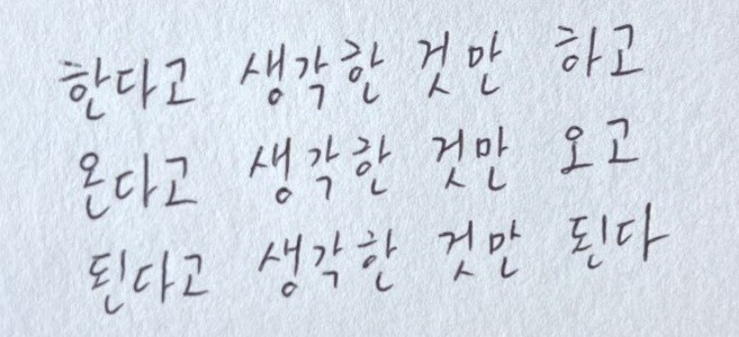 한다고 생각한 것만 하고
온다고 생각한 것만 오고
된다고 생각한 것만 된다